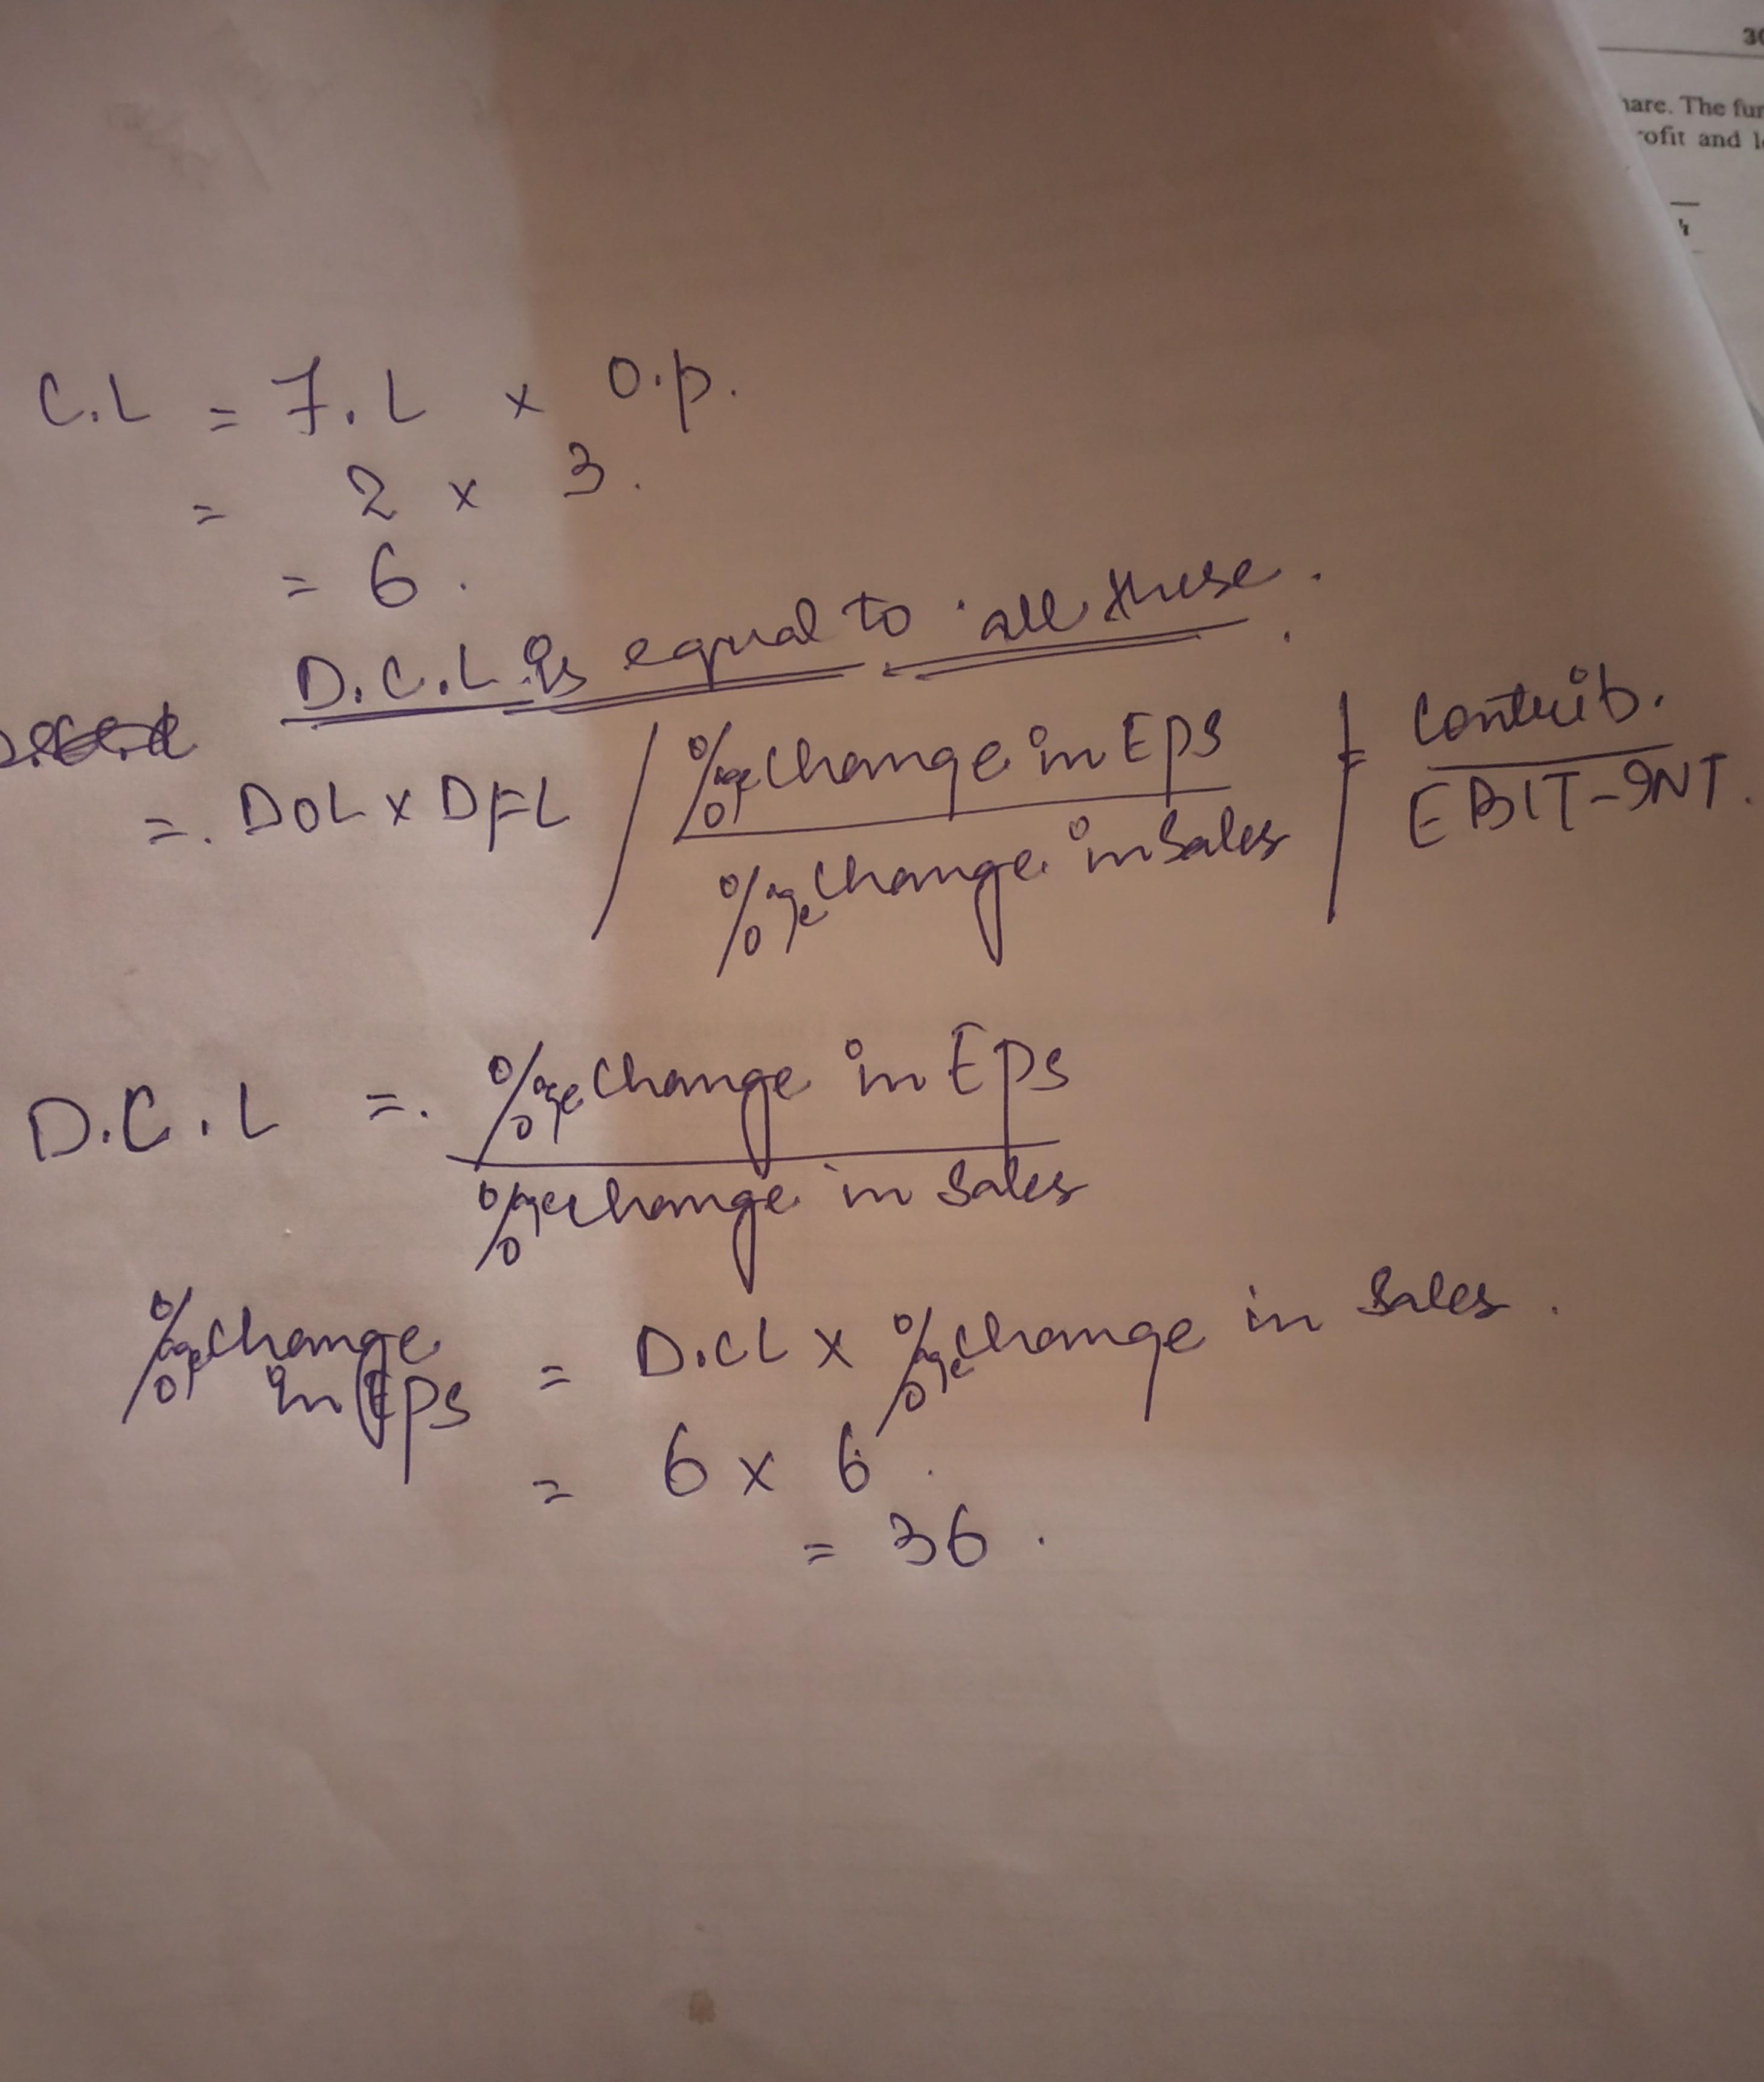 30
hare. The fur
rofit and l
C.L = F.L x O.p.
= 2 x 3.
= 6.
D.C.L is equal to all these.
=. DOL x DFL / %age change in EPS / %age change in sales / = Contrib. / EBIT-INT.
D.C.L =. %age change in EPS
%age change in sales
%age change in EPS = D.CL x %age change in sales.
= 6 x 6.
= 36.